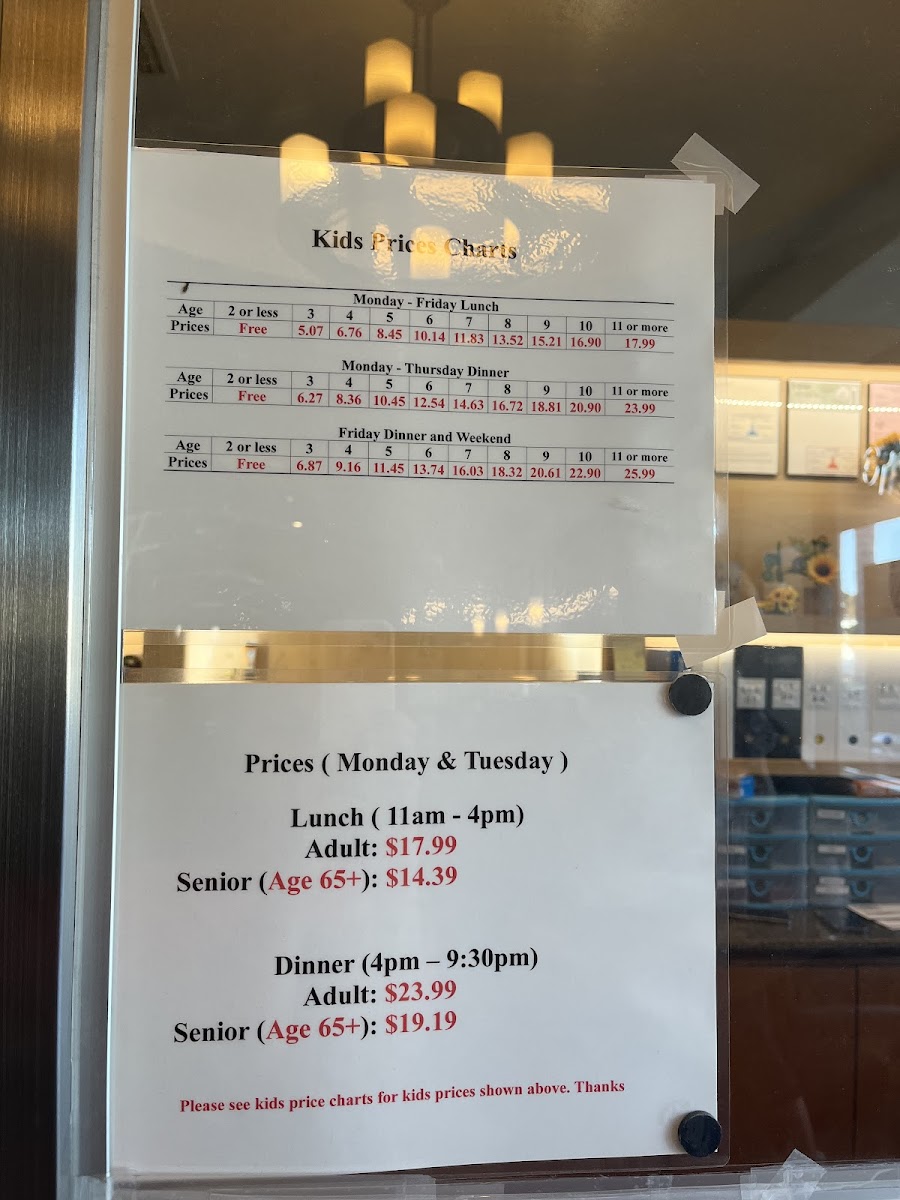 Kids Prices Charts
Monday - Friday Lunch
Age 2 or less 3 4 5 6 7 8 9 10 11 or more
Prices Free 5.07 6.76 8.45 10.14 11.83 13.52 15.21 16.90 17.99
Monday - Thursday Dinner
Age 2 or less 3 4 5 6 7 8 9 10 11 or more
Prices Free 6.27 8.36 10.45 12.54 14.63 16.72 18.81 20.90 23.99
Friday Dinner and Weekend
Age 2 or less 3 4 5 6 7 8 9 10 11 or more
Prices Free 6.87 9.16 11.45 13.74 16.03 18.32 20.61 22.90 25.99
Prices ( Monday & Tuesday )
Lunch ( 11am - 4pm)
Adult: $17.99
Senior (Age 65+): $14.39
Dinner (4pm – 9:30pm)
Adult: $23.99
Senior (Age 65+): $19.19
Please see kids price charts for kids prices shown above. Thanks